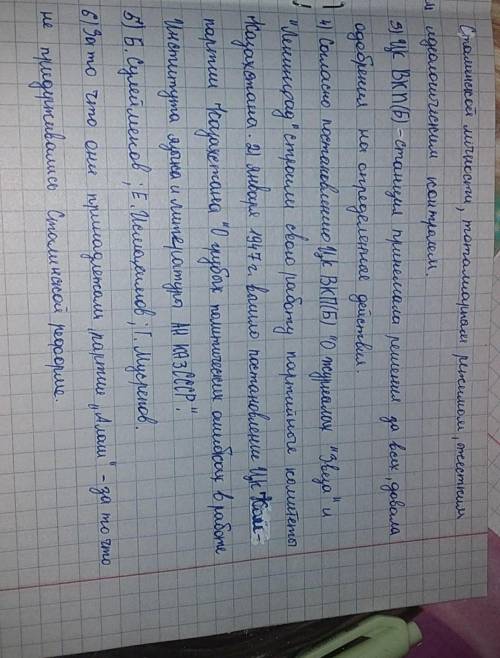 Сталинской личности, тоталиарным режимом, жестким
идеологическим контролем.
3) ЦК ВКП(б) - станция принемала решения за всех, довала
одобрения на определенные действия.
4) Согласно постановлению ЦК ВКП(б) "О журналах "Звезда" и
"Ленинград" строили свою работу партийные комитеты
Казахстана. 21 января 1947 г. вышло постановление ЦК Ком-
партии Казахстана "О грубых политических ошибках в работе
Института языка и литературы АН КАЗССР".
5) Б. Сулейменов; Е. Исмаилов; Г. Мусрепов.
6) За то что они принадлежали партие "Алаш" - за то что
не придерживались Сталинской реформе.